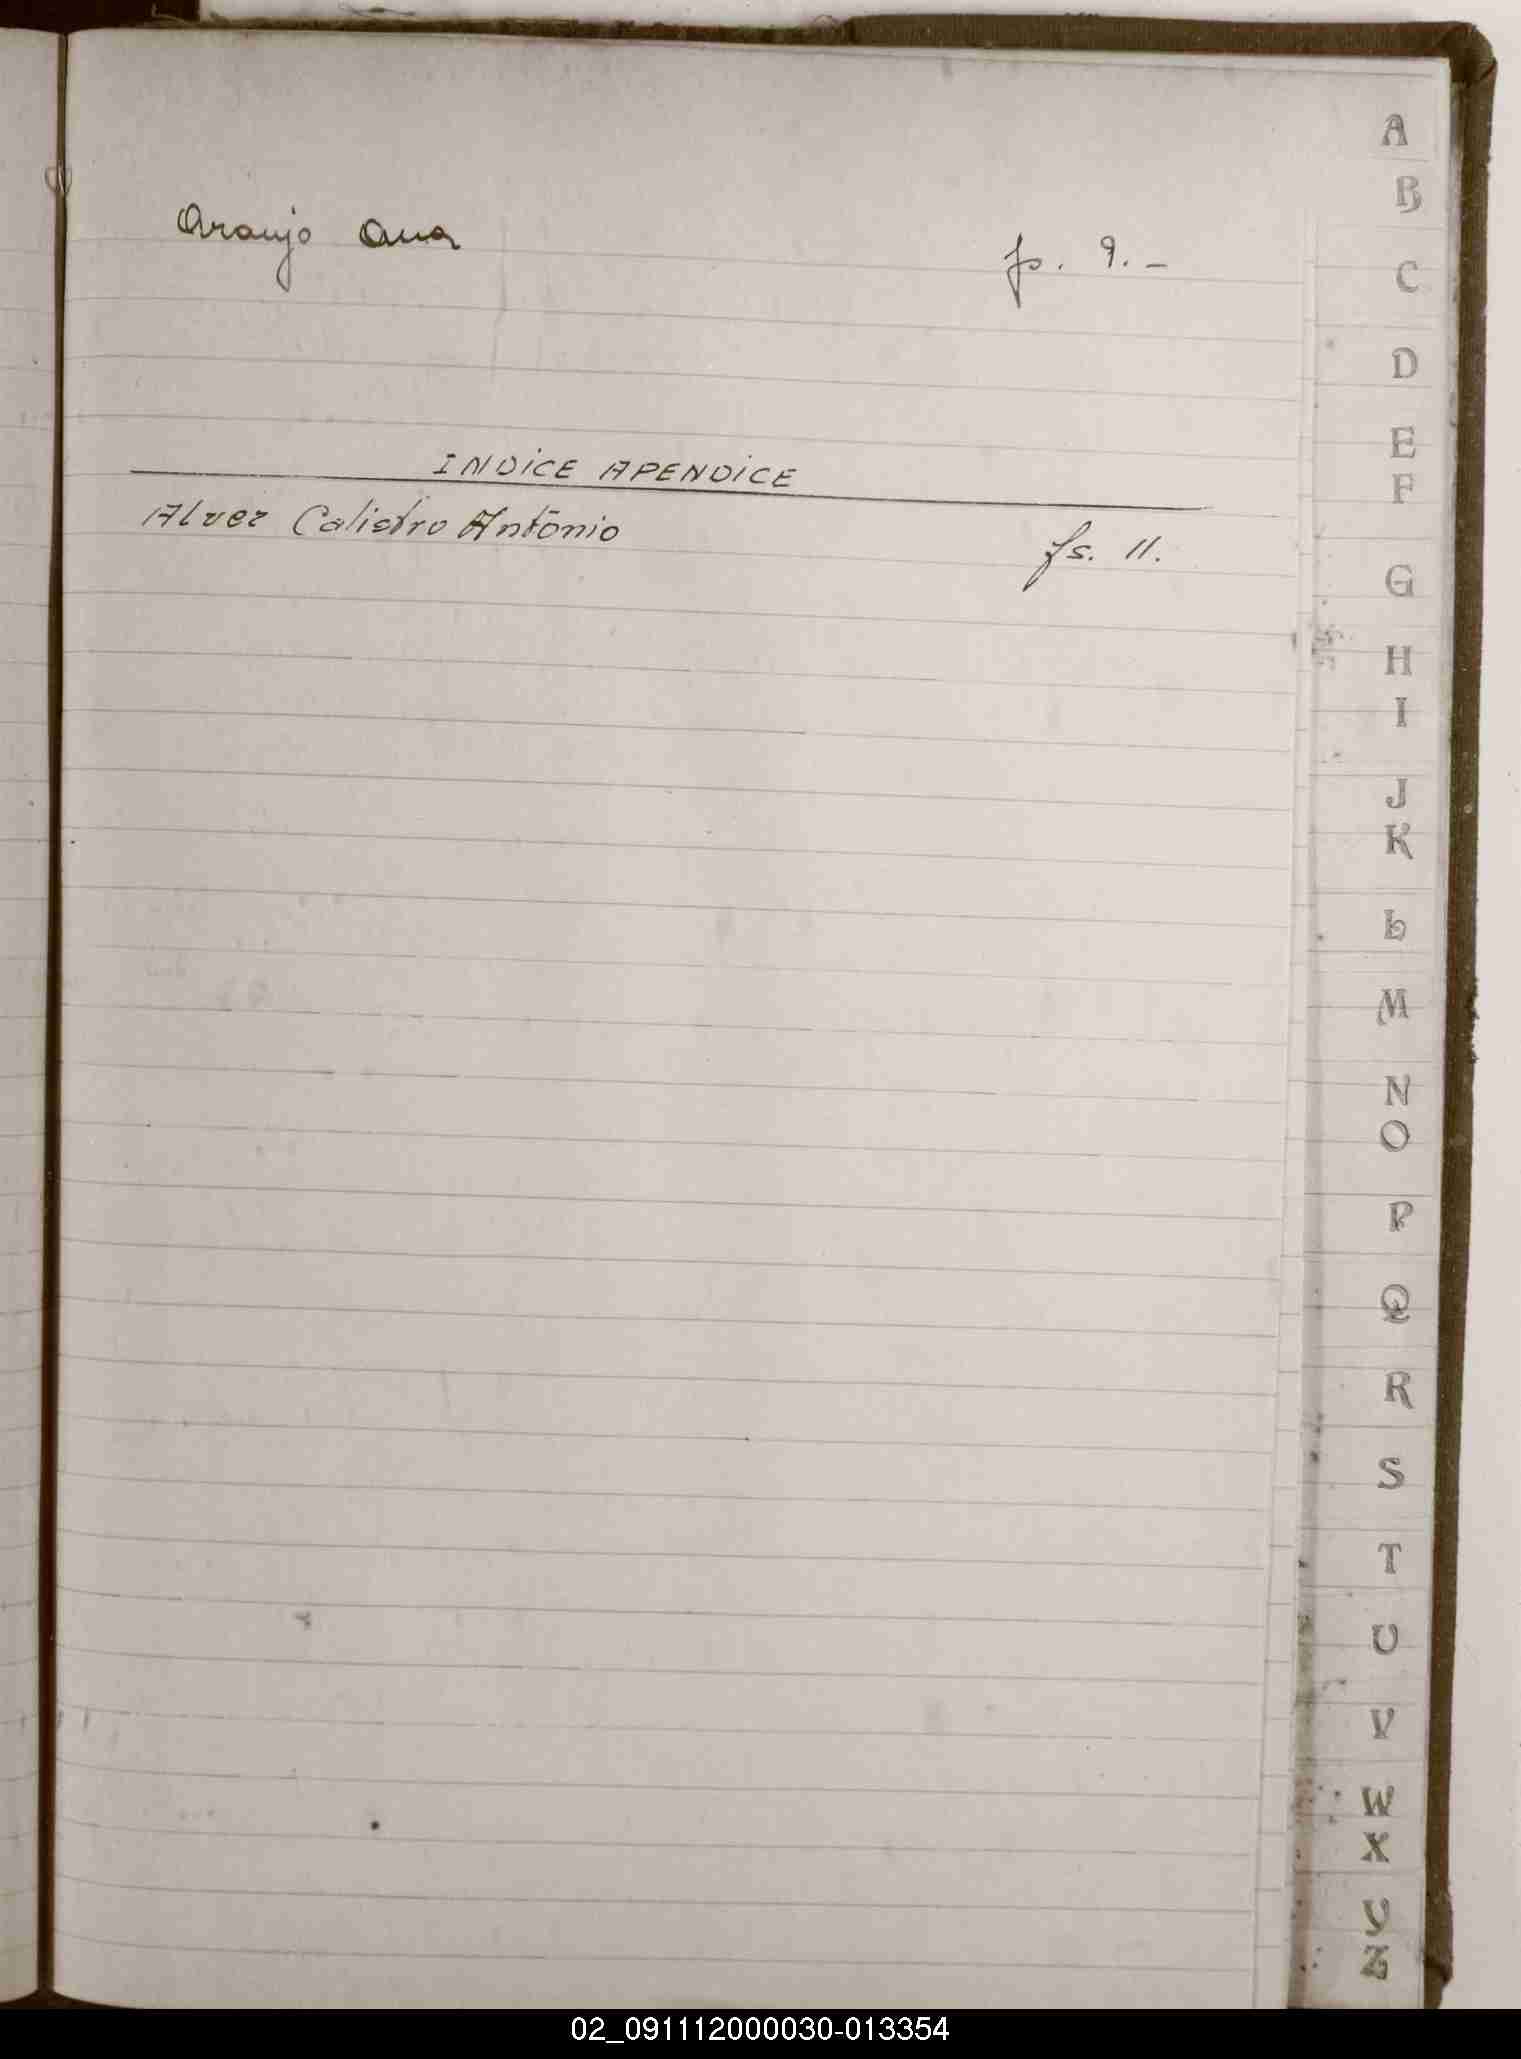 Araujo Ana fs. 9.-
INDICE APENDICE
Alvez Calistro Antonio fs. 11.
A
B
C
D
E
F
G
H
I
J
K
L
M
N
O
P
Q
R
S
T
U
V
W
X
Y
Z
02_091112000030-013354